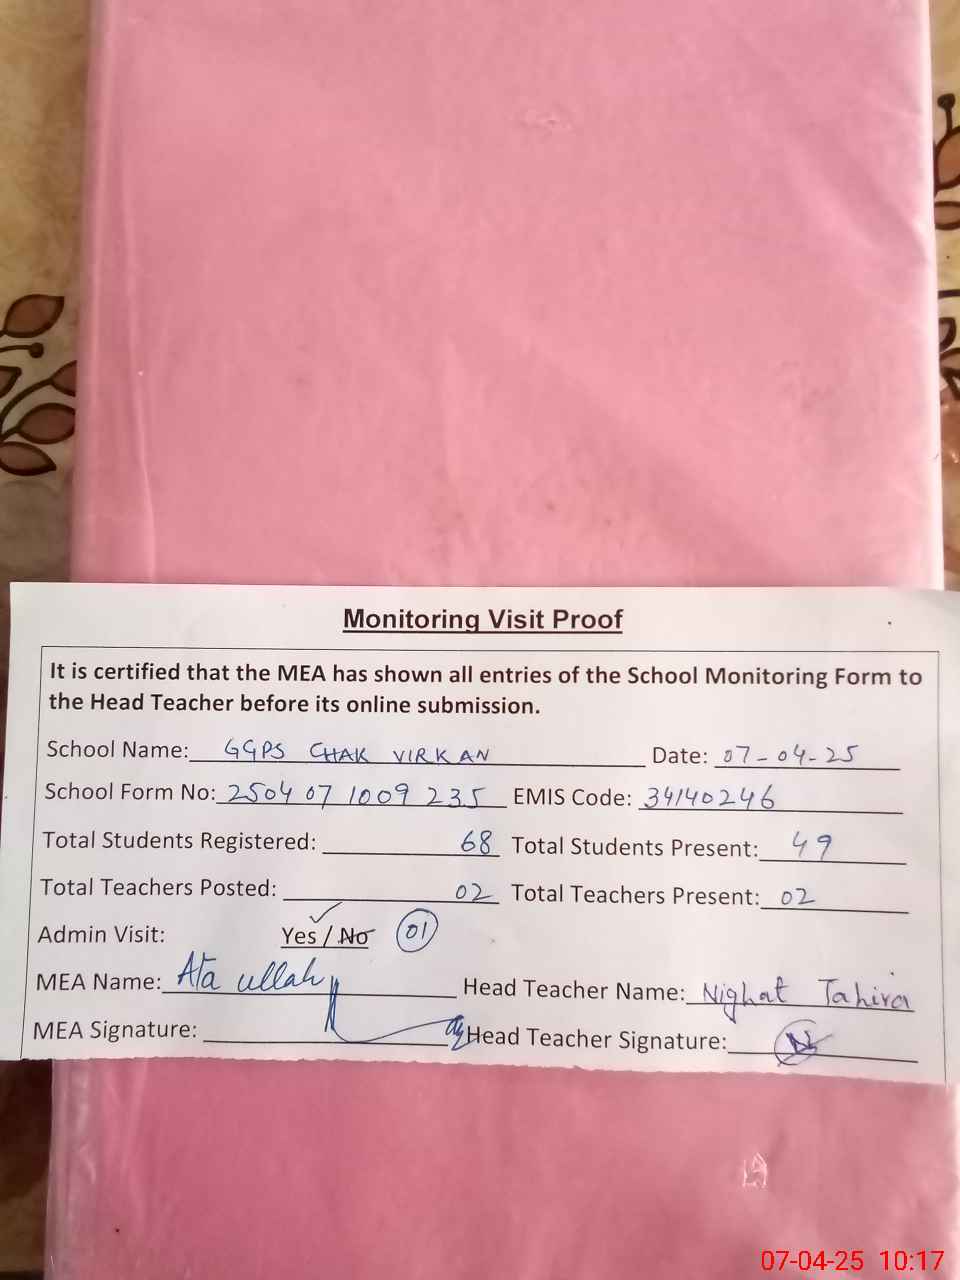 Monitoring Visit Proof
It is certified that the MEA has shown all entries of the School Monitoring Form to
the Head Teacher before its online submission.
School Name: GGPS CHAK VIRKAN Date: 07-04-25
School Form No: 2504 07 1009 235 EMIS Code: 34140246
Total Students Registered: 68 Total Students Present: 49
Total Teachers Posted: 02 Total Teachers Present: 02
Admin Visit: Yes / No 01
MEA Name: Ata ullah Head Teacher Name: Nighat Tahira
MEA Signature: Head Teacher Signature:
07-04-25 10:17